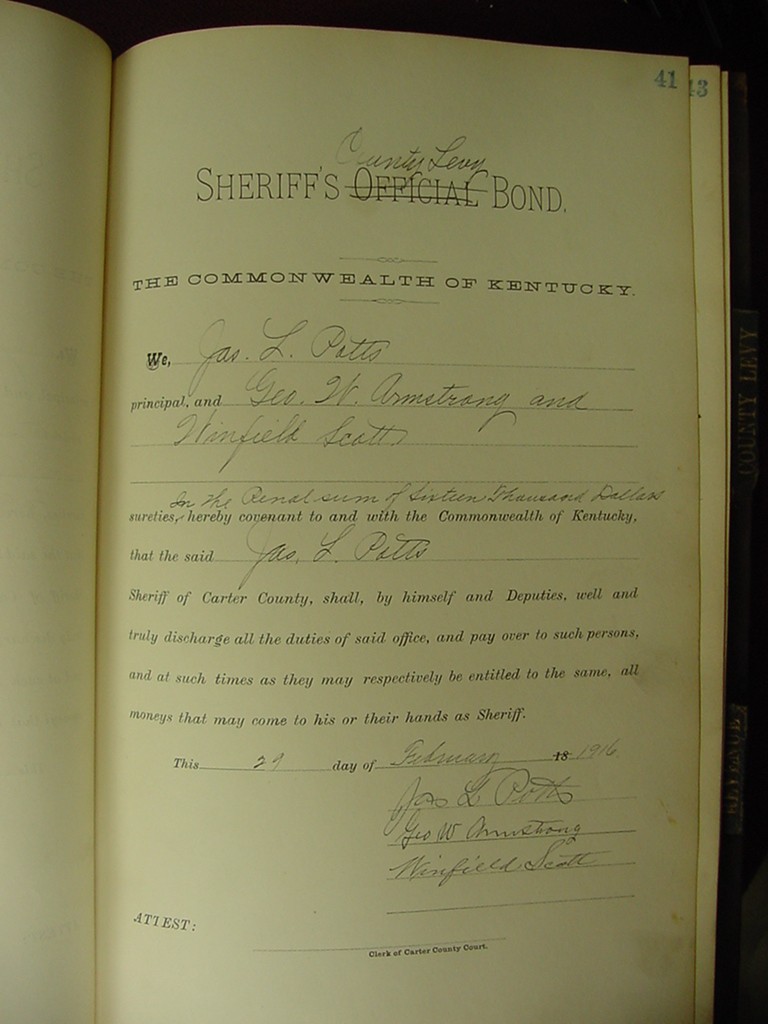 41
43
County Levy
SHERIFF'S OFFICIAL BOND.
THE COMMONWEALTH OF KENTUCKY.
We, Jas. L. Potts
principal, and Geo. W. Armstrong and
Winfield Scott
In the Penal sum of Sixteen Thousand Dollars
sureties, hereby covenant to and with the Commonwealth of Kentucky,
that the said Jas. L. Potts
Sheriff of Carter County, shall, by himself and Deputies, well and
truly discharge all the duties of said office, and pay over to such persons,
and at such times as they may respectively be entitled to the same, all
moneys that may come to his or their hands as Sheriff.
This 29 day of February 18 1916.
Jas L Potts
Geo W Armstrong
Winfield Scott
ATTEST:
Clerk of Carter County Court.
COUNTY LEVY
REVENUE